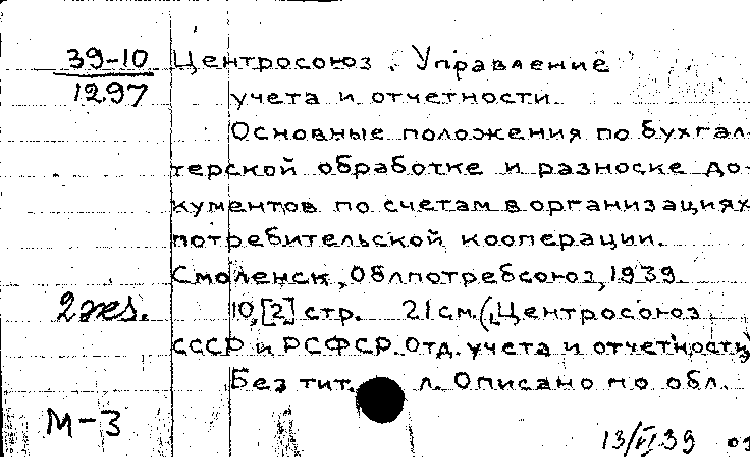 39-10 Центросоюз. Управление
1297 учета и отчетности.
Основные положения по бухгал-
терской обработке и разноске до-
кументов по счетам в организациях
потребительской кооперации.
Смоленск, Облпотребсоюз, 1939.
2 экз. 10, [2] стр. 21 см. (Центросоюз
СССР и РСФСР. Отд. учета и отчетности)
Без тит. л. Описано по обл.
М-3
13/VI 39